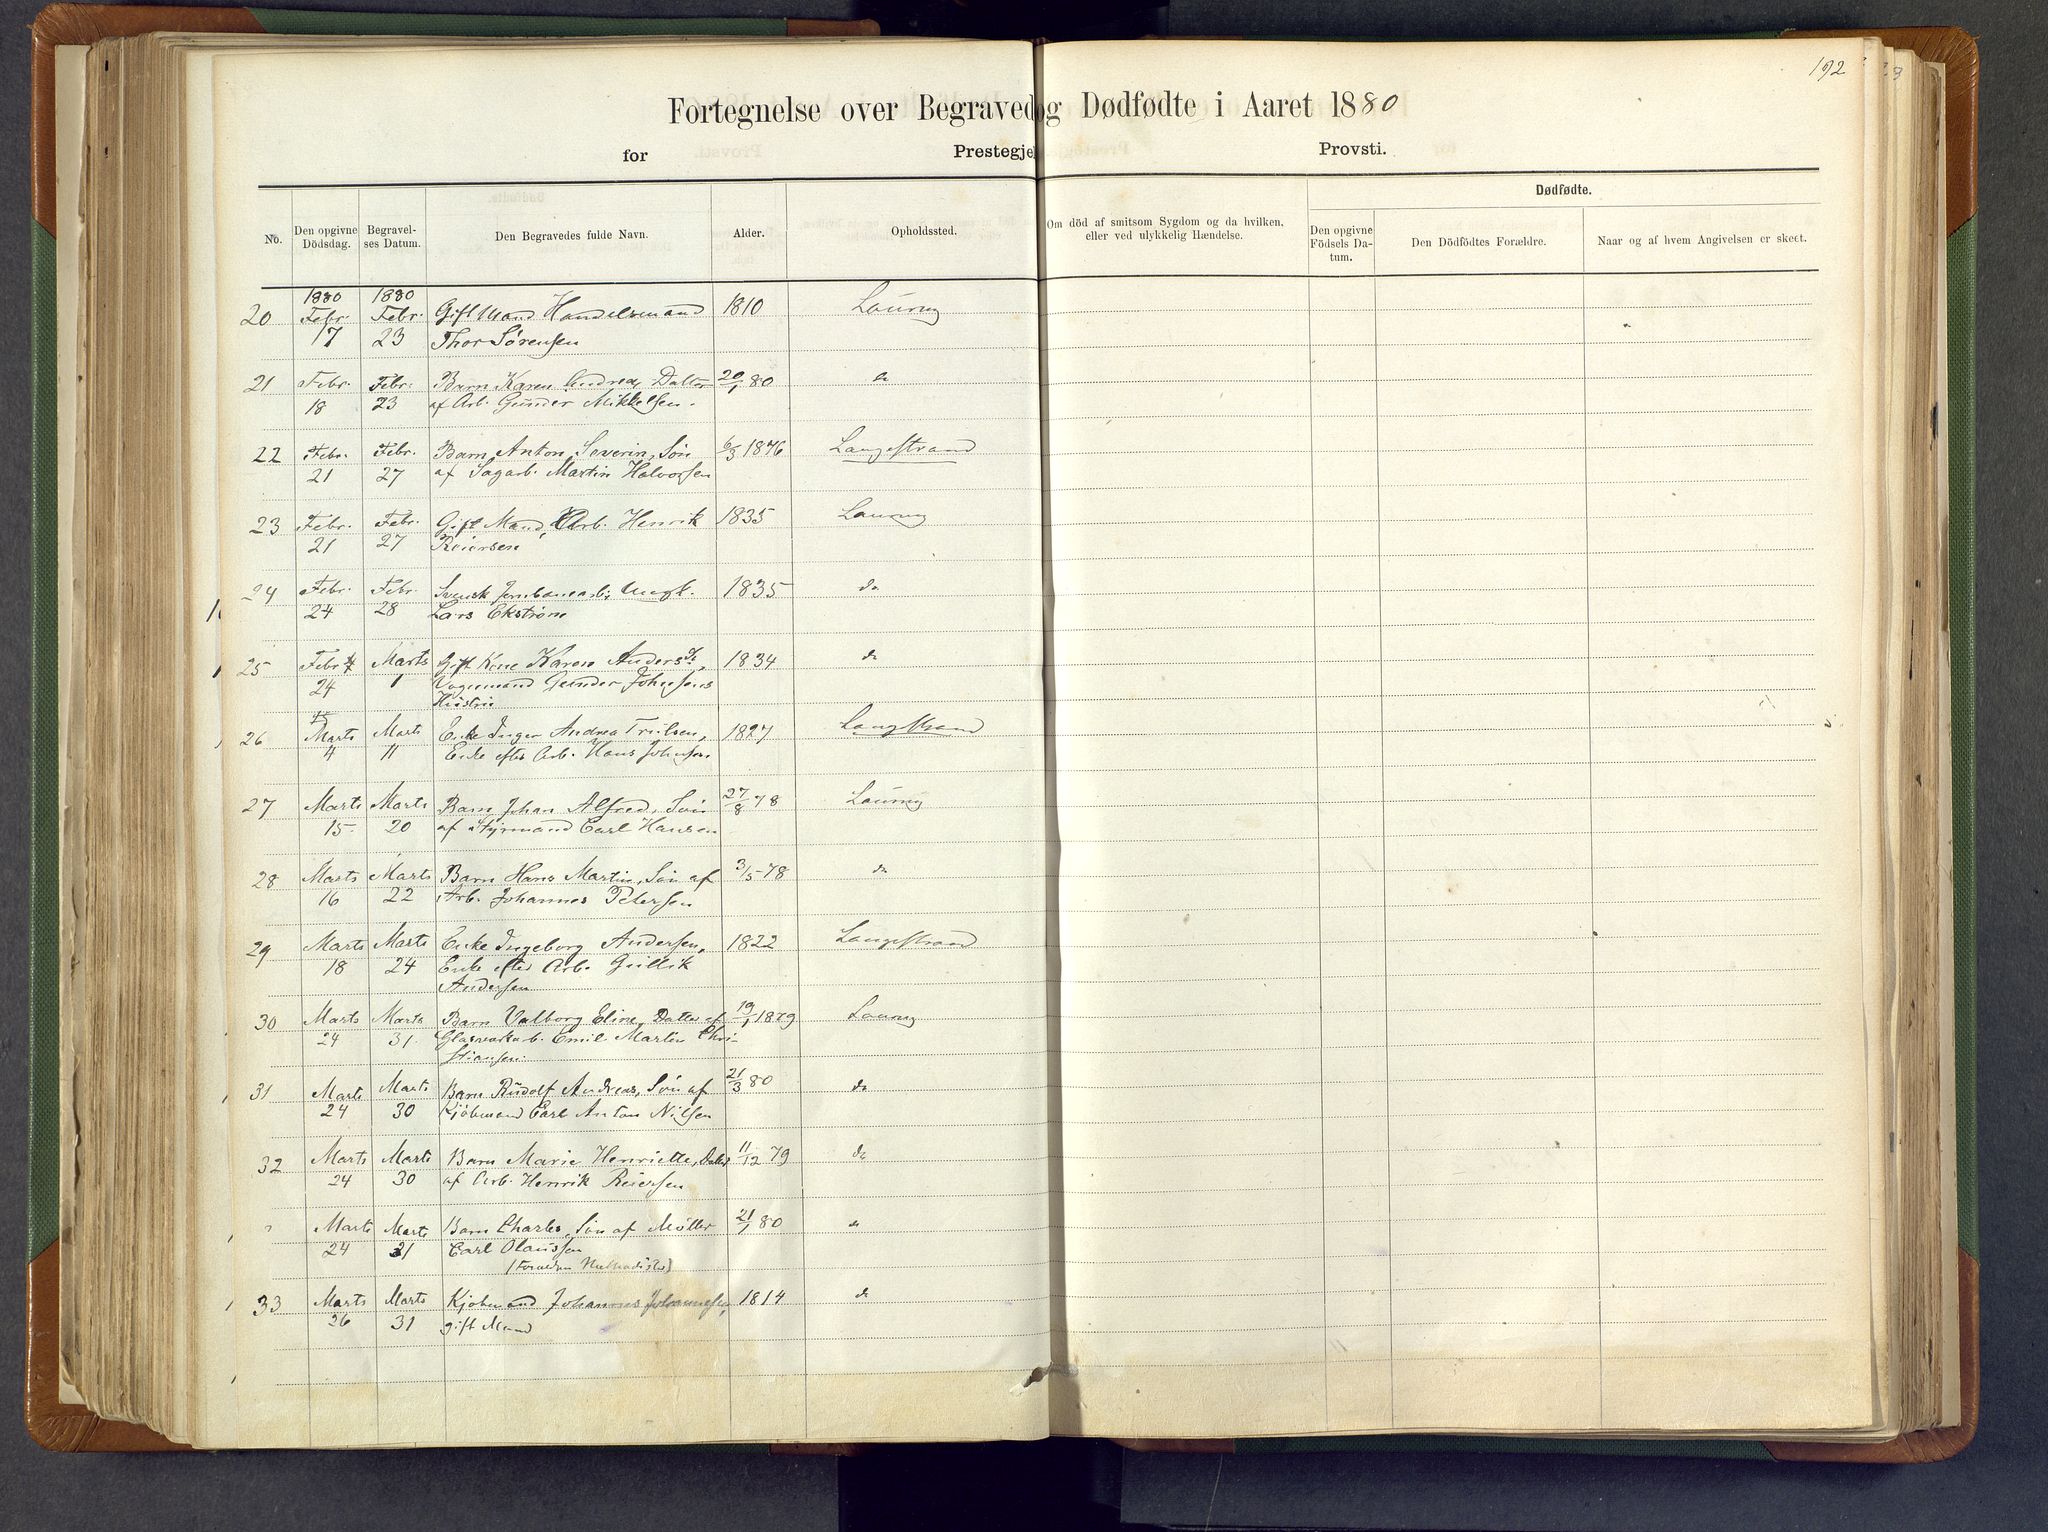 192
Fortegnelse over Begravede og Dødfødte i Aaret 1880
for Prestegjel Provsti.
No. Den opgivne Dödsdag. Begravelses Datum. Den Begravedes fulde Navn. Alder. Opholdssted. Om död af smitsom Sygdom og da hvilken, eller ved ulykkelig Hændelse. Dødfødte. Den opgivne Födsels Datum. Den Dödfödtes Forældre. Naar og af hvem Angivelsen er skeet.
1880 1880
20 Febr. Febr. Gift Mand Handelsmand 1810 Laurvig
17 23 Thor Sørensen
21 Febr. Febr. Barn Karen Andrea, Datter 20/1 80 do
18 23 af Arb. Gunder Mikkelsen.
22 Febr. Febr. Barn Anton Severin, Søn 6/3 1876 Langestrand
21 27 af Sagarb. Martin Halvorsen
23 Febr. Febr. Gift Mand, Arb. Henrik 1835 Laurvig
21 27 Reiersen
24 Febr. Febr. Svensk Jernbanearb. Ungk. 1835 do
24 28 Lars Ekstrøm
25 Febr. Marts Gift Kone Karen Andersdr., 1834 do
24 1 Vognmand Gunder Johnsens
Hustru
26 Marts Marts Enke Inger Andrea Trulsen, 1827 Langestrand
4 11 Enke efter Arb. Hans Johnsen.
27 Marts Marts Barn Johan Alfred, Søn 27/8 78 Laurvig
15 20 af Styrmand Carl Hansen
28 Marts Marts Barn Hans Martin, Søn af 3/5 78 do
16 22 Arb. Johannes Petersen
29 Marts Marts Enke Ingeborg Andersen, 1822 Langestrand
18 24 Enke efter Arb. Gullik
Andersen
30 Marts Marts Barn Valborg Eline, Datter af 19/1 1879 Laurvig
24 31. Glasværkarb. Emil Martin Chri-
stiansen.
31 Marts Marts Barn Rudolf Andreas, Søn af 21/3 80 do
24 30 Kjøbmand Carl Anton Nilsen
32 Marts Marts Barn Marie Henriette, Datter 11/12 79 do
24 30 af Arb. Henrik Reiersen
Marts Marts Barn Charles, Søn af Møller 21/1 80 do
24 31 Carl Olaussen
(Forældre Methodister)
33 Marts Marts Kjøbmand Johannes Johannesen, 1814 do
26 31 gift Mand